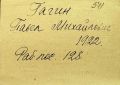 541
Рагин
Павел Михайлович
1922.
Раб. пос. 128